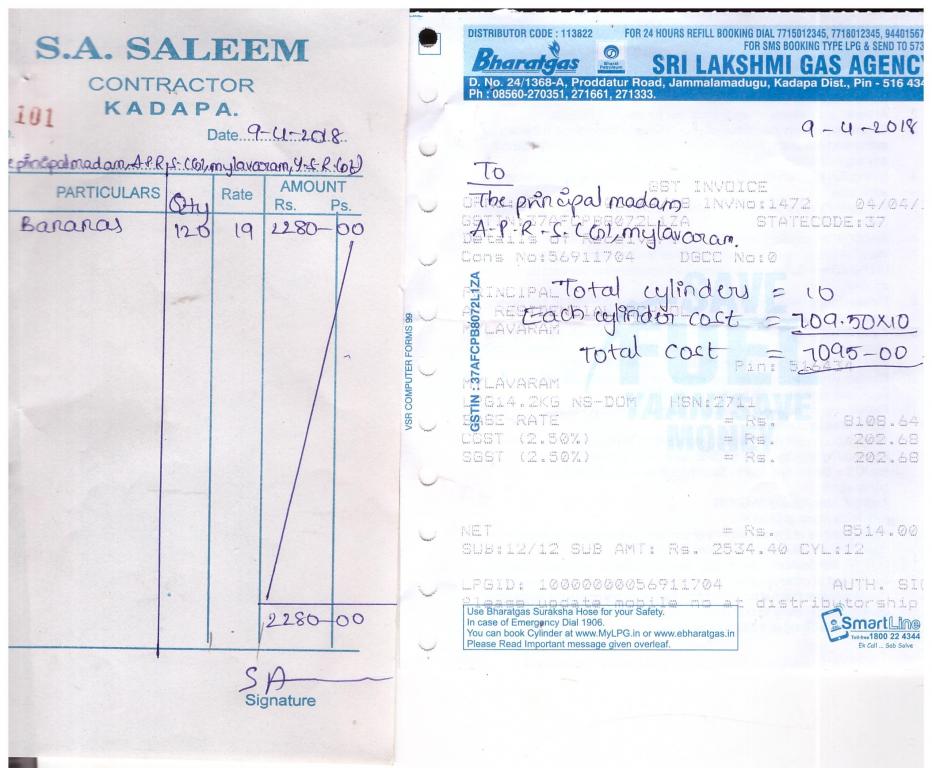 S.A. SALEEM
CONTRACTOR
KADAPA.
101
Date...9-4-2018
principal madam, A.P.R.S.C(G), mylavaram, Y.S.R.(Dt)
PARTICULARS Qty Rate AMOUNT
Rs. Ps.
Bananas 120 19 2280-00
2280-00
SA
Signature
VSR COMPUTER FORMS 99
DISTRIBUTOR CODE : 113822 FOR 24 HOURS REFILL BOOKING DIAL 7715012345, 7718012345, 94401567
FOR SMS BOOKING TYPE LPG & SEND TO 573
Bharatgas
Bharat Petroleum
SRI LAKSHMI GAS AGENCY
D. No. 24/1368-A, Proddatur Road, Jammalamadugu, Kadapa Dist., Pin - 516 434
Ph : 08560-270351, 271661, 271333.
9-4-2018
To
The principal madam
A.P.R.S.C(G), mylavaram.
GST INVOICE
INVNo:1472 04/04/
GSTIN:37AFCPB8072L1ZA STATECODE:37
Cons No:56911704 DGCC No:0
Total cylinders = 10
PRINCIPAL
Each cylinder cost = 709.50X10
MYLAVARAM
Total cost = 7095-00
Pin: 516434
GSTIN : 37AFCPB8072L1ZA
MYLAVARAM
LPG14.2KG NS-DOM HSN:2711
BASE RATE = Rs. 8108.64
CGST (2.50%) = Rs. 202.68
SGST (2.50%) = Rs. 202.68
SAVE FUEL
SAVE MONEY
NET = Rs. 8514.00
SUB:12/12 SUB AMT: Rs. 2534.40 CYL:12
LPGID: 10000000056911704 AUTH. SI
Please update mobile no at distributorship
Use Bharatgas Suraksha Hose for your Safety.
In case of Emergency Dial 1906.
You can book Cylinder at www.MyLPG.in or www.ebharatgas.in
Please Read Important message given overleaf.
SmartLine
Toll-free 1800 22 4344
Ek Call ... Sab Solve